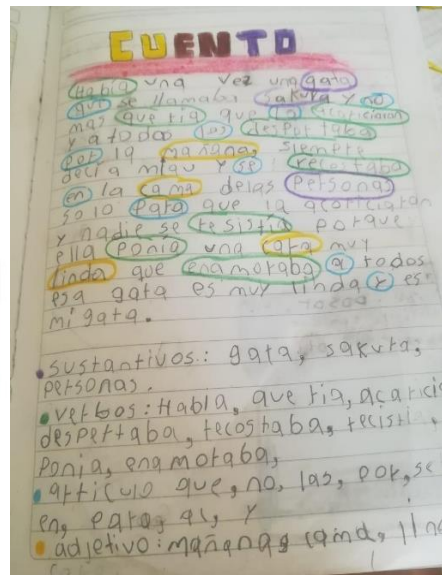 CUENTO
Había una vez una gata
que se llamaba Sakura y no
mas queria que la acariciaran
y a todos las despertaba
por la mañana, siempre
decia miau y se recostaba
en la cama delas Personas
solo Para que la acariciaran
y nadie se resistia porque
ella Ponia una cara muy
linda que enamoraba a todos
esa gata es muy linda y es
mi gata.
sustantivos: gata, sakura,
personas.
verbos: Habla, queria, acarici
despertaba, recostaba, recistia
Ponia, enamoraba,
articulo que, no, las, por, se
en, para, al, y
adjetivo: mañana,